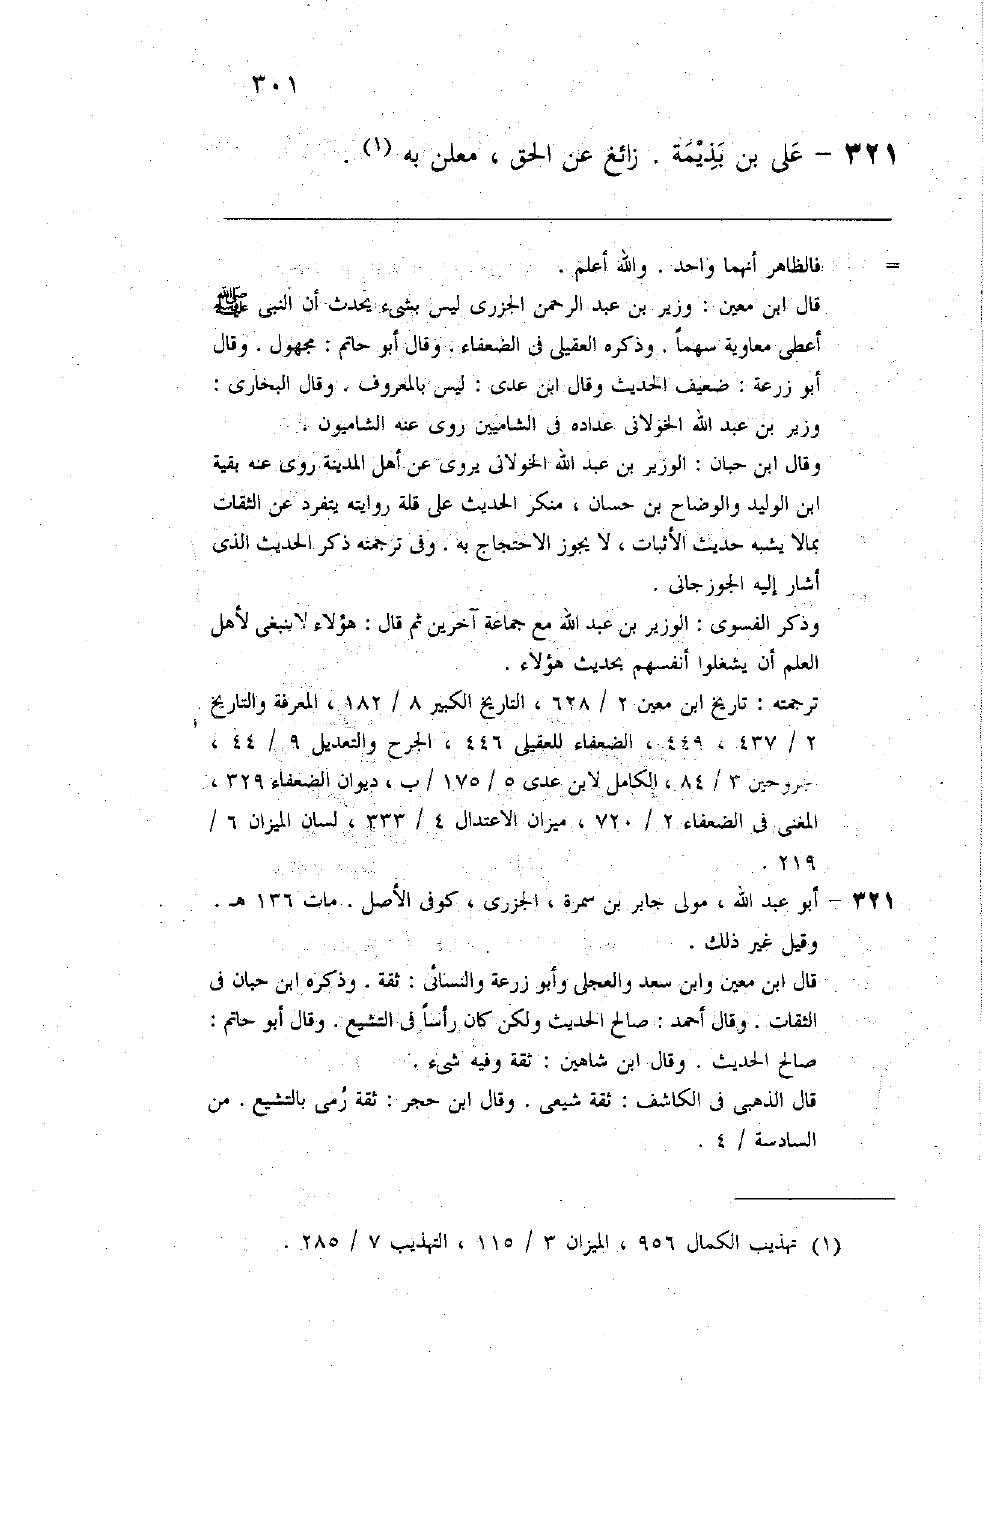 ٣٠١
٣٢١ – عَلى بن بَذِيْمَة . زائغ عن الحق ، معلن به (١) .
= فالظاهر أنهما واحد . والله أعلم .
قال ابن معين : وزير بن عبد الرحمن الجزرى ليس بشىء يحدث أن النبى ﷺ
أعطى معاوية سهماً . وذكره العقيلى فى الضعفاء . وقال أبو حاتم : مجهول . وقال
أبو زرعة : ضعيف الحديث وقال ابن عدى : ليس بالمعروف . وقال البخارى :
وزير بن عبد الله الخولانى عداده فى الشاميين روى عنه الشاميون .
وقال ابن حبان : الوزير بن عبد الله الخولانى يروى عن أهل المدينة روى عنه بقية
ابن الوليد والوضاح بن حسان ، منكر الحديث على قلة روايته يتفرد عن الثقات
بمالا يشبه حديث الأثبات ، لا يجوز الاحتجاج به . وفى ترجمته ذكر الحديث الذى
أشار إليه الجوزجانى .
وذكر الفسوى : الوزير بن عبد الله مع جماعة آخرين ثم قال : هؤلاء لا ينبغى لأهل
العلم أن يشغلوا أنفسهم بحديث هؤلاء .
ترجمته : تاريخ ابن معين ٢ / ٦٢٨ ، التاريخ الكبير ٨ / ١٨٢ ، المعرفة والتاريخ
٢ / ٤٣٧ ، ٤٤٩ ، الضعفاء للعقيلى ٤٤٦ ، الجرح والتعديل ٩ / ٤٤ ،
جروحين ٣ / ٨٤ ، الكامل لابن عدى ٥ / ١٧٥ / ب ، ديوان الضعفاء ٣٢٩ ،
المغنى فى الضعفاء ٢ / ٧٢٠ ، ميزان الاعتدال ٤ / ٣٣٣ ، لسان الميزان ٦ /
٢١٩ .
٣٢١ – أبو عبد الله ، مولى جابر بن سمرة ، الجزرى ، كوفى الأصل . مات ١٣٦ هـ .
وقيل غير ذلك .
قال ابن معين وابن سعد والعجلى وأبو زرعة والنسائى : ثقة . وذكره ابن حبان فى
الثقات . وقال أحمد : صالح الحديث ولكن كان رأساً فى التشيع . وقال أبو حاتم :
صالح الحديث . وقال ابن شاهين : ثقة وفيه شىء .
قال الذهبى فى الكاشف : ثقة شيعى . وقال ابن حجر : ثقة رُمى بالتشيع . من
السادسة / ٤ .
(١) تهذيب الكمال ٩٥٦ ، الميزان ٣ / ١١٥ ، التهذيب ٧ / ٢٨٥ .